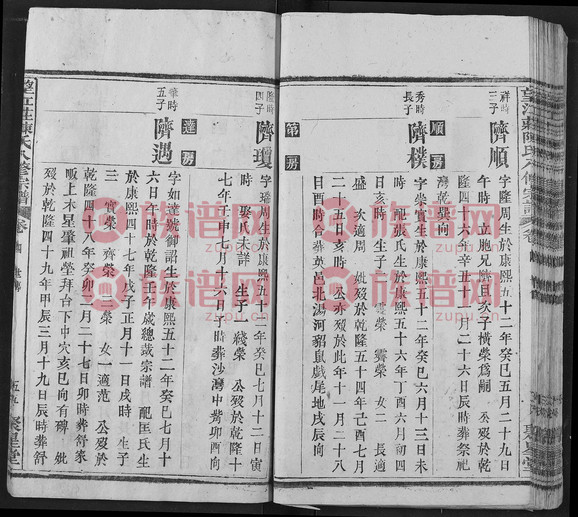 祥時
三子
濟順
字隆周生於康熙五十二年癸巳五月二十九日
午時 立胞兄濟且次子橫榮爲嗣 公歿於乾
隆四十六年辛丑 月二十六日辰時葬祭祀
灣乾巽向
順房
秀時
長子
濟樸
字榮實生於康熙五十二年癸巳六月十三日未
時 配張氏生於康熙五十六年丁酉六月初四
日亥時 生子 雲榮 霽榮 女二 長適
盛 次適周 妣歿於乾隆五十四年己酉七月
二十五日亥時 公亦歿於此年十一月二十八
日酉時合葬英邑北湯河貂鼠戲尾地戌辰向
第房
隆時
四子
濟瓊
字瑋周生於康熙五十二年癸巳七月十二日寅
時 娶氏未詳 生子 綫榮 公歿於乾隆十
七年壬申七月十六日子時葬沙灣中嘴卯酉向
達房
華時
五子
濟遇
字如達號御詔生於康熙五十二年癸巳七月十
六日丑時於乾隆壬午歲總裁宗譜 配匡氏生
於康熙四十七年戊子正月十一日戌時 生子
三 實榮 齊榮 女一適范 公歿於
乾隆四十八年癸卯二月二十七日卯時葬舒家
畈上木星肇祖塋拜台下中穴亥巳向有碑 妣
歿於乾隆四十九年甲辰三月十九日辰時葬舒
望江莊陳氏八修宗譜
卷
四
五五
聚星堂
族谱网
www.zupu.cn